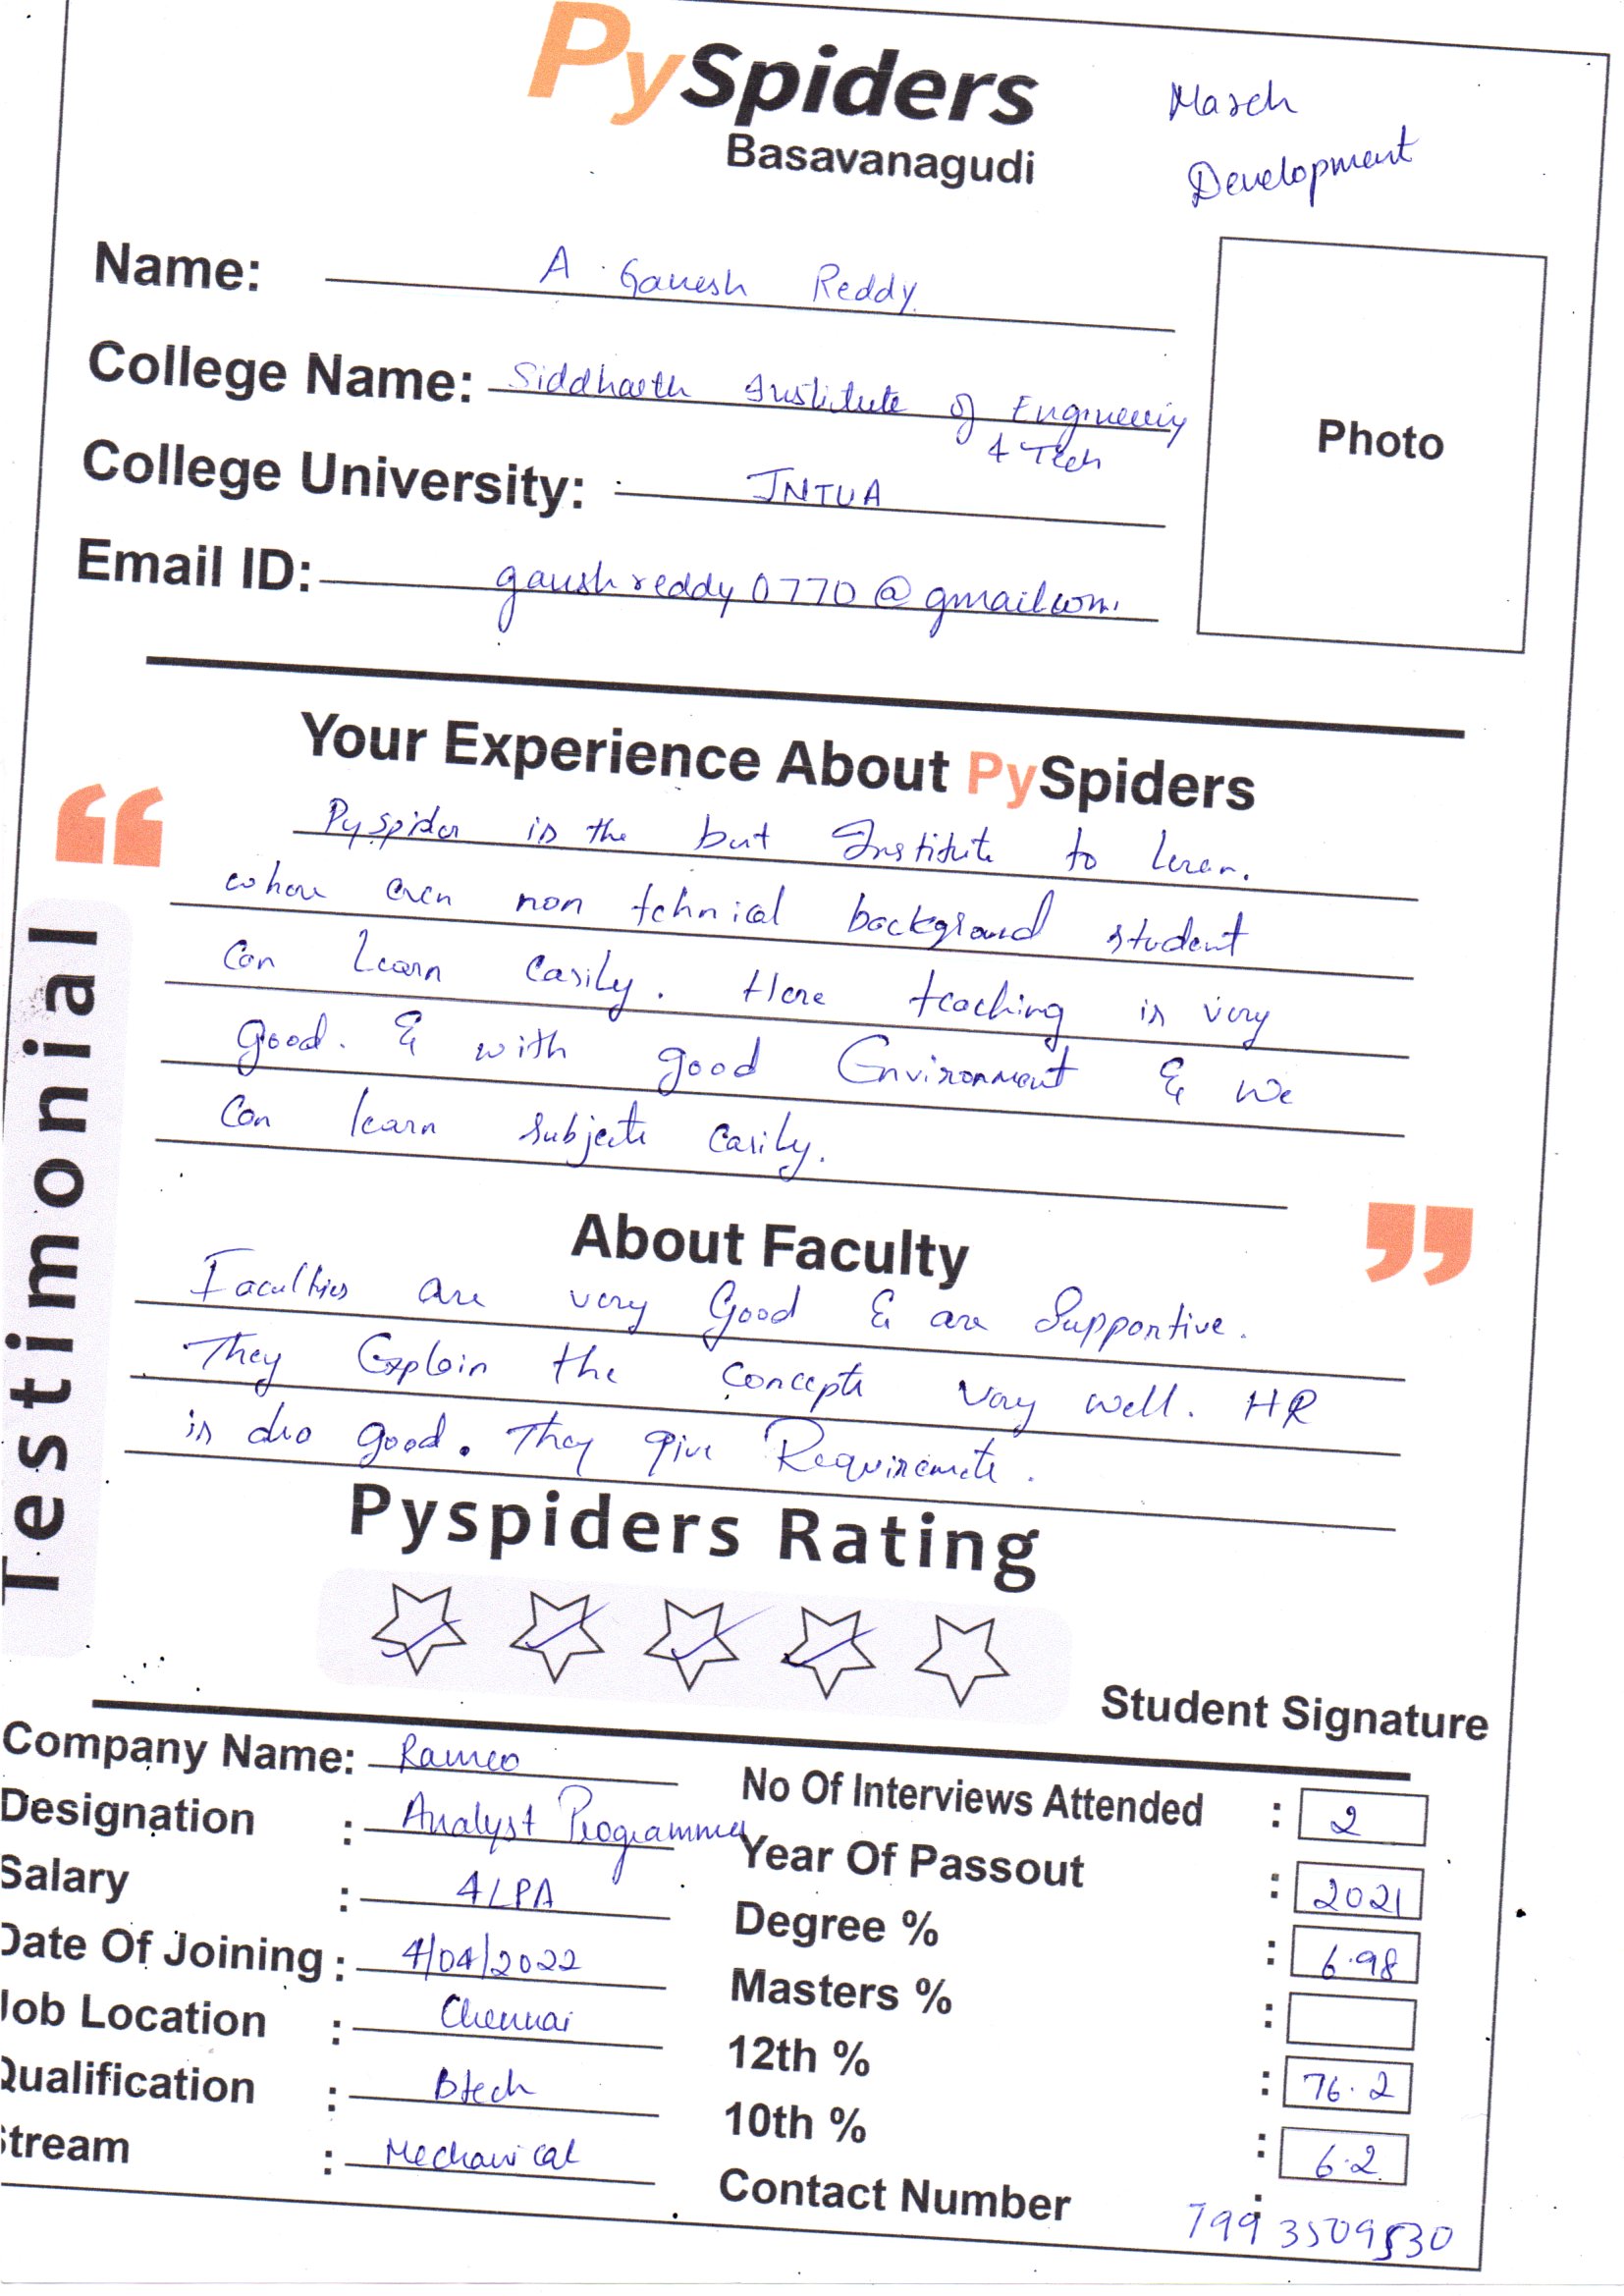 PySpiders
Basavanagudi
March
Development
Name: A. Ganesh Reddy
College Name: Siddharth Institute of Engineering
& Tech
College University: JNTUA
Email ID: ganeshreddy0770@gmail.com
Photo
Your Experience About PySpiders
Pyspider is the best Institute to leran.
where even non tchnical background student
can Learn easily. Here teaching is very
good. & with good Environment & we
can learn subjects easily.
Testimonial
About Faculty
Faculties are very Good & are Supportive.
They Explain the concepts very well. HR
is also good. They give Requirements.
Pyspiders Rating
Student Signature
Company Name: Ramco
No Of Interviews Attended : 2
Designation : Analyst Programmer
Year Of Passout : 2021
Salary : 4LPA
Degree % : 6.98
Date Of Joining : 4/04/2022
Masters % :
Job Location : Chennai
12th % : 76.2
Qualification : Btech
10th % : 6.2
Stream : Mechanical
Contact Number : 7993509530